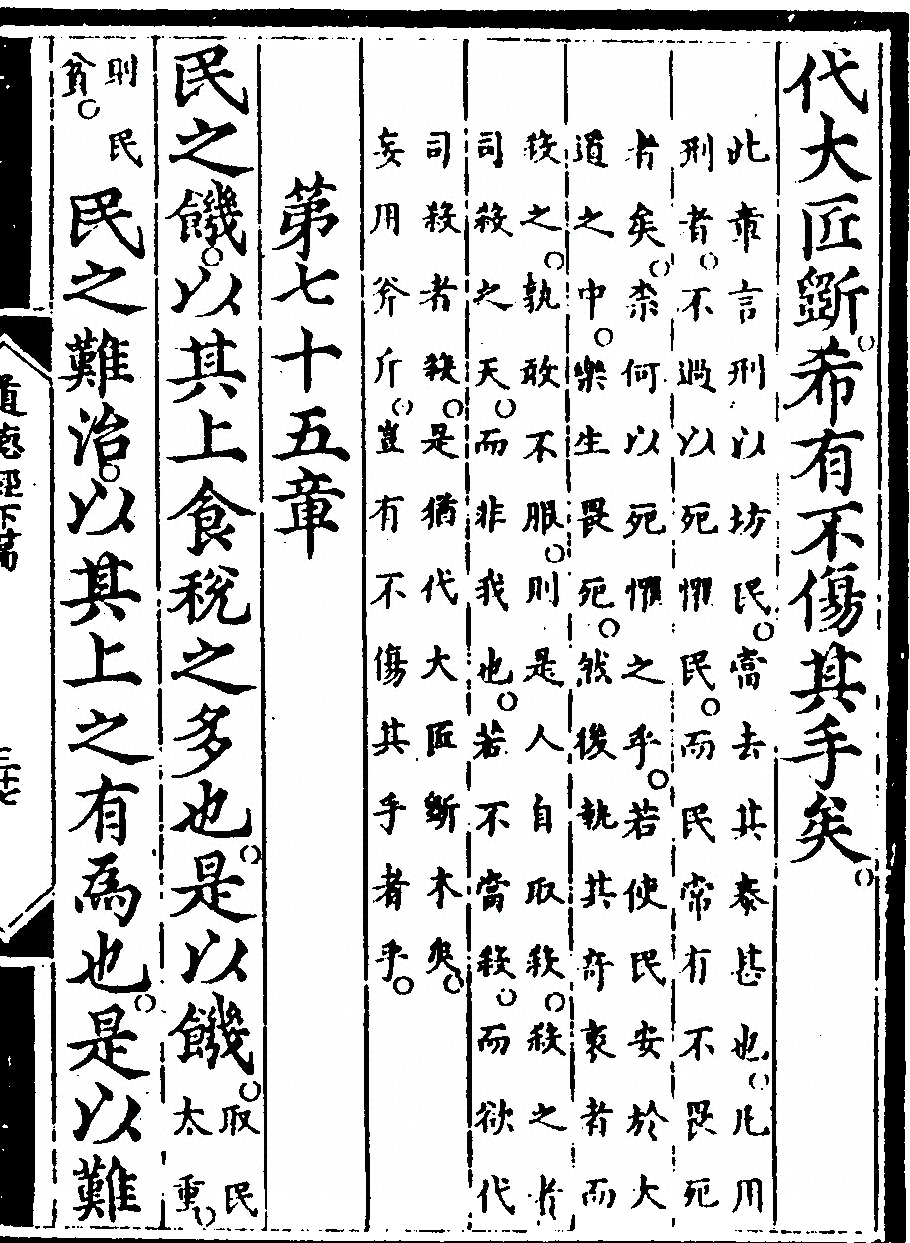 代大匠斲希有不傷其手矣
此章言刑以坊民當去其泰甚也凡用
刑者不過以死懼民而民常有不畏死
者矣柰何以死懼之乎若使民安於大
道之中樂生畏死然後執其奇衺者而
殺之孰敢不服則是人自取殺殺之者
司殺之天而非我也若不當殺而欲代
司殺者殺是猶代大匠斲木矣
妄用斧斤豈有不傷其手者乎
第七十五章
民之饑以其上食稅之多也是以饑取民
太重
則民
貧民之難治以其上之有為也是以難
道德經下篇
三十七